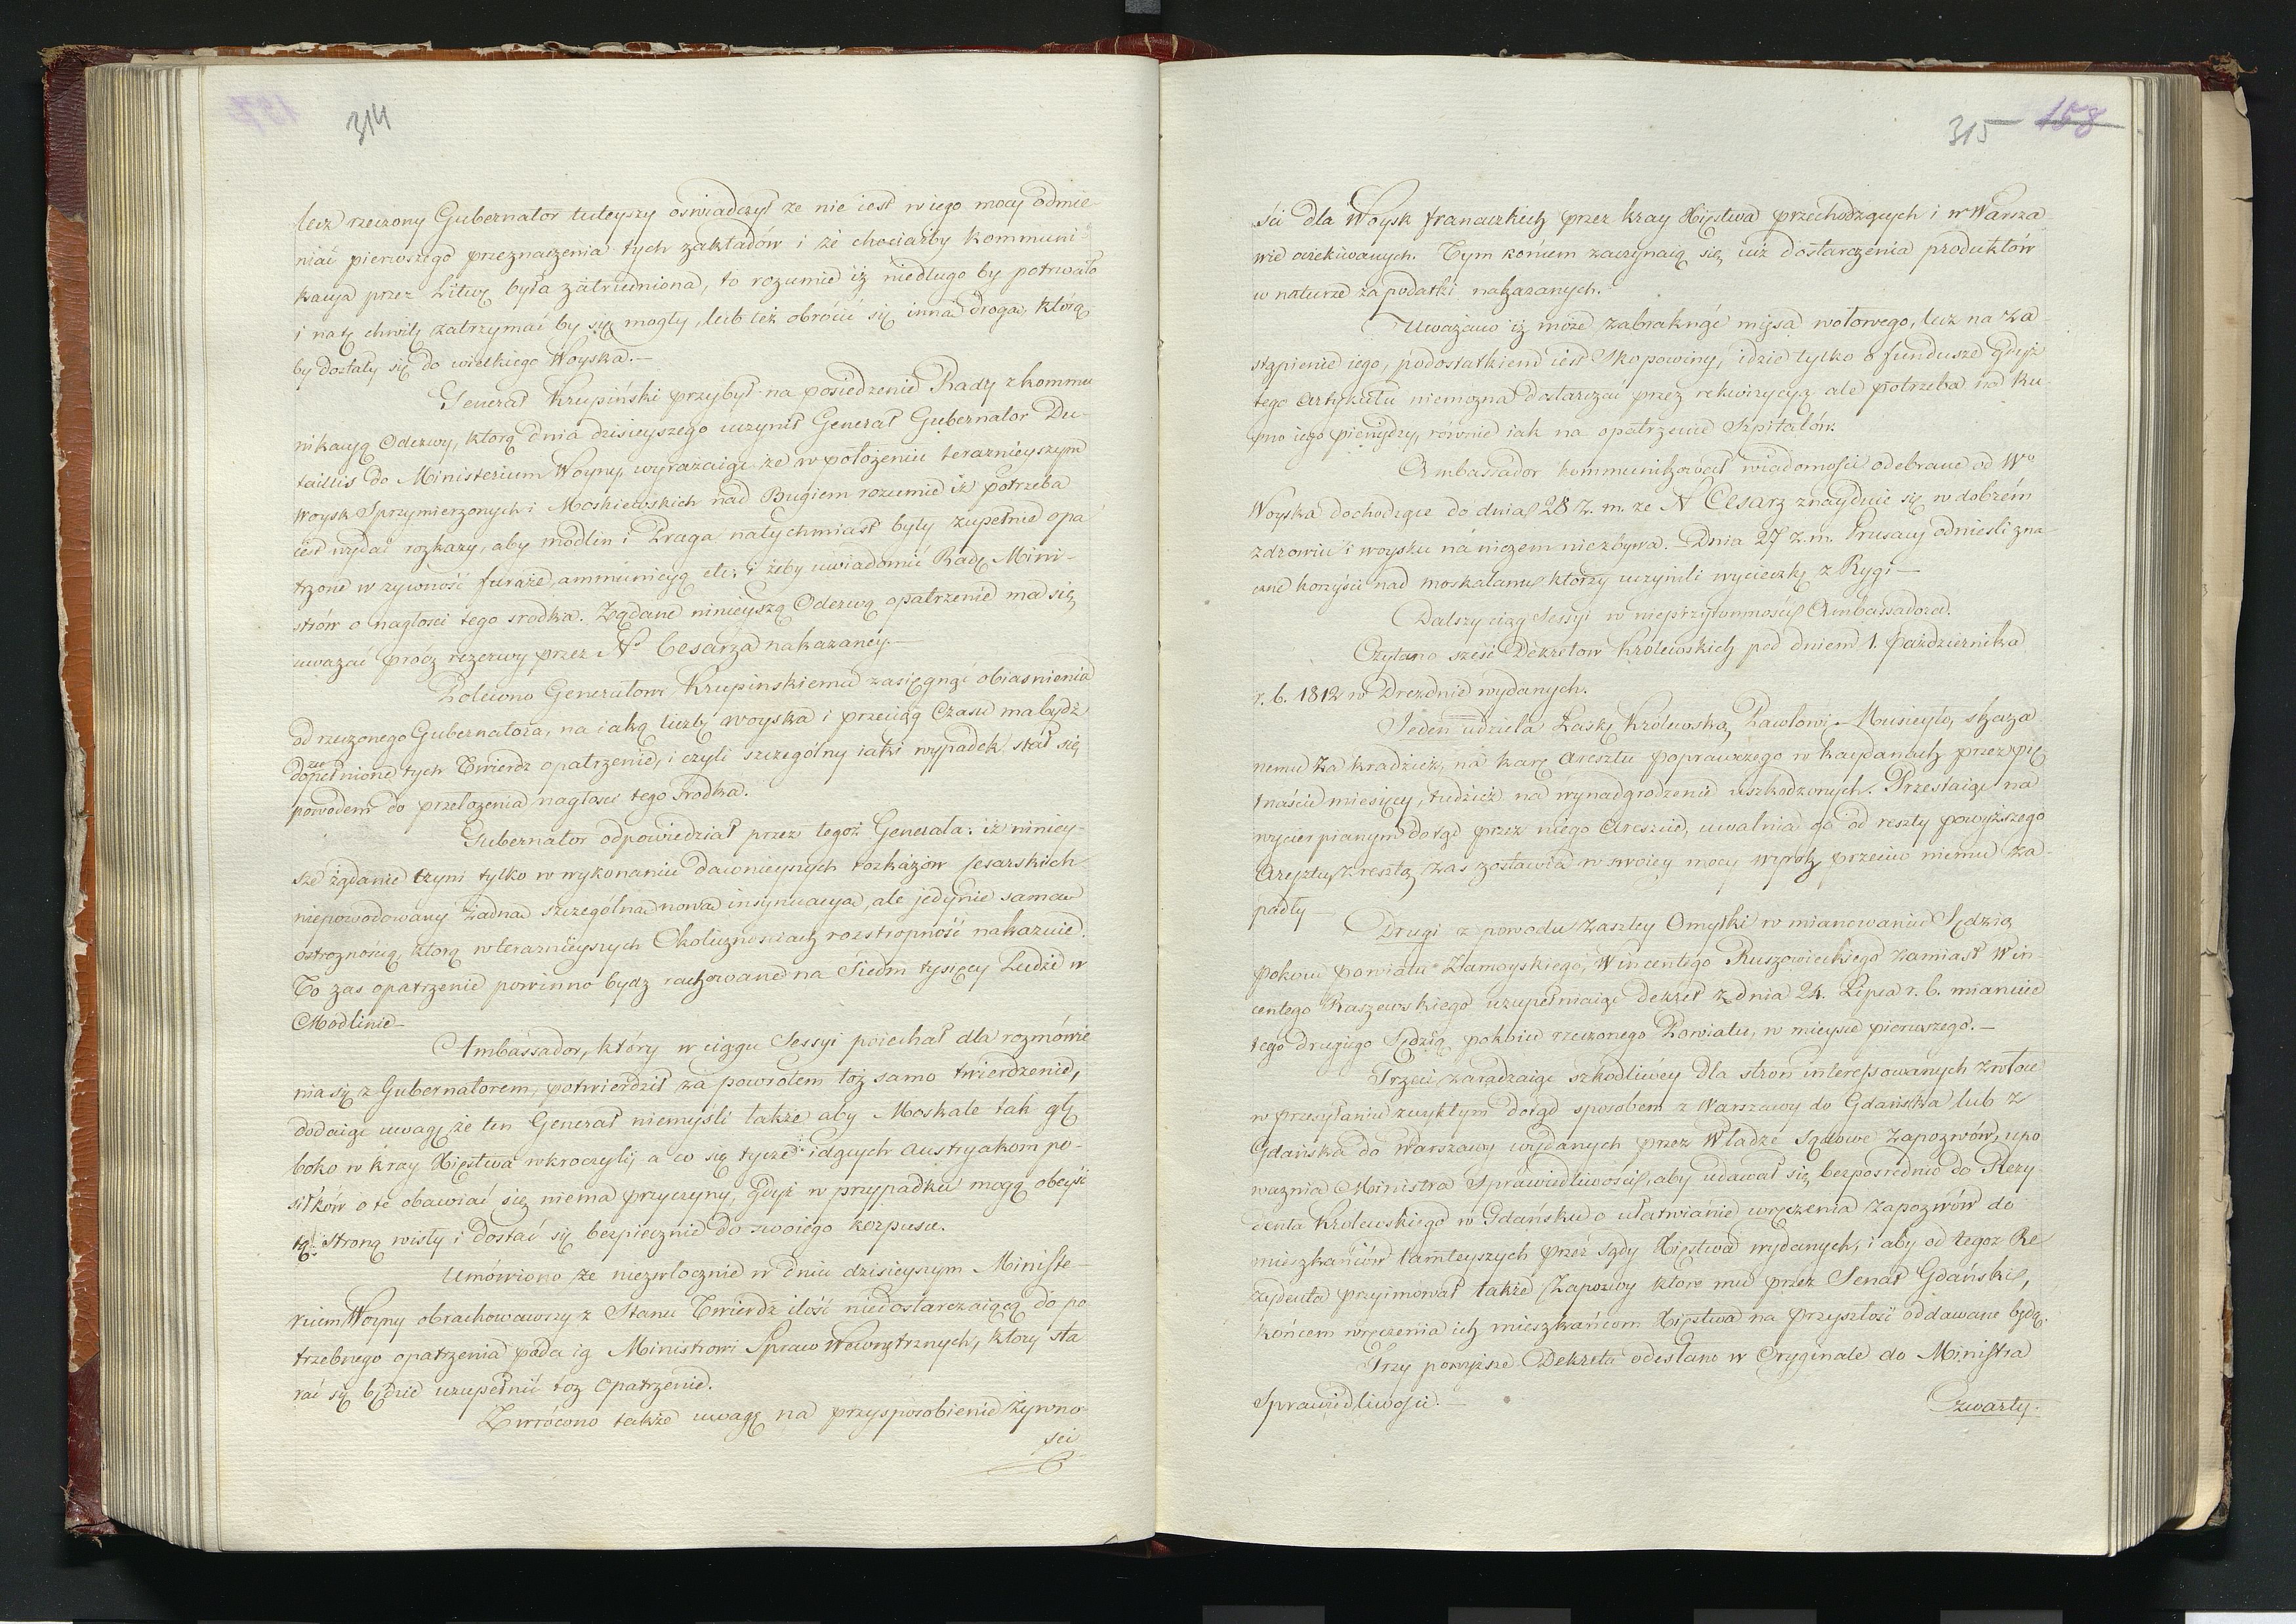 314
lecz rzeczony Gubernator tuteyszy oswiadczył ze nie iest w iego mocy odmie-
niać pierwszego przeznaczenia tych zakładów i że chociażby kommuni-
kacya przez Litwę była zatrudniona, to rozumie iż niedługo by potrwało
i na tę chwilę zatrzymać by się mogły, lub też obrócić się inną drogą, którą
by dostały się do wielkiego Woyska.—
Generał Krupiński przybył na posiedzenie Rady z kommu
nikacyą Odezwy, ktorą dnia dzisieyszego uczynił Generał Gubernator Du-
taillis do Ministerium Woyny, wyrażaiąc że w położeniu teraznieyszym
Woysk Sprzymierzonych i Moskiewskich nad Bugiem rozumie iż potrzeba
iest wydać rozkazy, aby Modlin i Praga natychmiast były zupełnie opa
trzone w zywność furaże, ammunicyą etc: i żeby uwiadomić Radę Mini-
strów o nagłosci tego srodka. Ządane ninieyszą Odezwą opatrzenie ma się
uważać prócz rezerwy przez N° Cesarza nakazaney.—
Polecono Generałowi Krupinskiemu zasięgnąć obiasnienia
od rzeczonego Gubernatora, na iaką liczbę woyska i przeciąg Czasu ma bydź
dopełnione tych Twierdz opatrzenie, i czyli szczególny iaki wypadek stał się
powodem do przełożenia nagłosci tego srodka.
Gubernator odpowiedział przez tegoż Generała: iż niniey-
sze żądanie czyni tylko w wykonaniu dawnieyszych rozkazów Cesarskich
niepowodowany żadną szczególną nową insynuacyą, ale jedynie samą
ostrożnoscią, ktorą w teraznieyszych Okolicznosciach rozstropność nakazuie.
To zas opatrzenie powinno bydz rachowane na Siedm tysięcy Ludzi w
Modlinie—
Ambassador, który w ciągu Sessyi poiechał dla rozmówie
nia się z Gubernatorem, potwierdził za powrotem toż samo twierdzenie,
dodaiąc uwagę że ten Generał niemyśli także aby Moskale tak głę
boko w kray Xięstwa wkroczyli, a co się tycze idących Austryakom po-
siłków o te obawiać się niema przyczyny, gdyż w przypadku mogą obeyść
tę stroną wisły i dostać się bezpiecznie do swoiego korpusu.
Umówiono że niezwłocznie w dniu dzisieyszym Ministe-
rium Woyny obrachowawszy z Stanu Twierdz ilość niedostarczaiącą do po
trzebnego opatrzenia poda ią Ministrowi Spraw Wewnętrznych, ktory sta
rać się będzie uzupełnić toż Opatrzenie.
Zwrócono także uwagę na przysposobienie Żywno-
sci
315 158
sci dla Woysk francuzkich przez kray Xięstwa przechodzących i w Warsza
wie oczekiwanych. Tym końcem zaczynaią się iuż dostarczenia produktów
w naturze za podatki nakazanych.
Uważano iż może zabraknąć mięsa wołowego, lecz na za
stąpienie iego, podostatkiem iest Skopowiny, idzie tylko o fundusze gdyż
tego Artykułu niemożna dostarczać przez rekwizycyą ale potrzeba na ku
pno iego pieniędzy, równie iak na opatrzenie Szpitalów.
Ambassador kommunikował wiadomości odebrane od Wo
Woyska dochodzące do dnia 28 z. m. że N Cesarz znayduie się w dobrém
zdrowiu i woysku na niczem niezbywa. Dnia 27 z. m. Prusacy odniesli zna
czne korzyści nad moskalami ktorzy uczynili wycieczkę z Rygi—
Dalszy ciąg Sessyi w nieprzytomności Ambassadora.
Czytano sześć Dekretów Królewskich pod dniem 1. Października
r. b. 1812 w Dreznie wydanych.
Jeden udziela Łaskę Królewską Pawłowi Musicyło, skaza
nemu za kradzież, na karę Aresztu poprawczego w kaydanach przez pię
tnaście miesięcy, tudzież na wynadgrodzenie uszkodzonych. Przestaiąc na
wycierpianym dotąd przez niego Areszcie, uwalnia go od reszty powyższego
Aresztu, z resztą zas zostawia w swoiey mocy wyrok przeciw niemu za
padły—
Drugi z powodu zaszłey Omyłki w mianowaniu Sędzią
pokoiu powiatu Zamoyskiego, Wincentego Ruszowieckiego zamiast Win
centego Raszewskiego uzupełniaiąc dekret z dnia 24. Lipca r. b. mianuie
tego drugiego Sędzią pokoiu rzeczonego Powiatu, w mieysce pierwszego.—
Trzeci zaradzaiąc szkodliwéy dla stron interessowanych zwłoce
w przesyłaniu zwykłym dotąd sposobem z Warszawy do Gdańska lub z
Gdańska do Warszawy wydanych przez Władze sądowe Zapozwów, upo
ważnia Ministra Sprawiedliwości, aby udawał się bezposrednio do Rezy
denta Krolewskiego w Gdańsku o ułatwianie wręczenia Zapozwów do
mieszkańców tamteyszych przez sądy Xięstwa wydanych, i aby od tegoż Re
zydenta przyimował także Zapozwy ktore mu przez Senat Gdański,
końcem wręczenia ich mieszkańcom Xięstwa na przyszłość oddawane będą.
Trzy powyższe Dekreta odesłano w Oryginale do Ministra
Sprawiedliwości.
Czwarty.